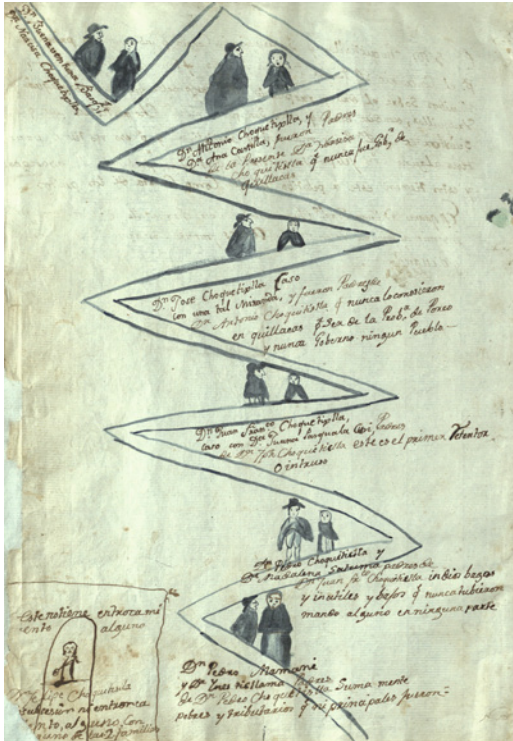 Dn. Buenaventura
Da. Narcisa Choquetiglla
Dn. Antonio Choquetiglla, y
Da. Ana Castilla, fueron Padres
de la presente Da. Narcisa
Choquetiglla q nunca fue Gobr. de
Quillacas
Dn. José Choquetiglla Caso
con una tal Miranda, y fueron Padres de
Dn. Antonio Choquetiglla q nunca lo conosieron
en quillacas pr. ser de la Prob.a de Poreo
y nunca Goberno ningun Pueblo
Dn. Juan Choquetiglla,
caso con Da. Juana Pasquala Padres
de Dn. Jph. Choquetiglla este es el primer Detentor
o intruso
Dn. Pedro Choquetiglla y
Da. Madalena padres de
Dn. Juan Choquetiglla indios bajos
y inutiles y q nunca tubieron
mando alguno en ninguna parte
Dn. Pedro Mamani
y Da. Ines Padres
de Dn. Pedro Choquetiglla Suma mente
pobres y tributarios q ni principales fueron
Este no tiene entronca mi
ento alguno
Choquetigla
susesion ni entronca
mto. alguno con
uno de las 2 familias